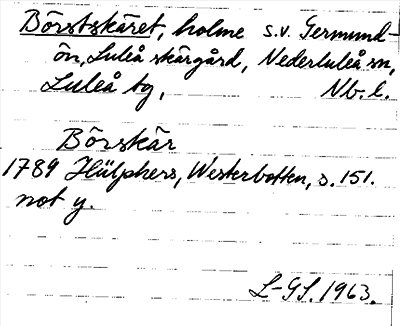 Börstskäret, holme s.v. Germund-
ön, Luleå skärgård, Nederluleå sn,
Luleå tg, Nb. l.
Börskär
1789 Hülphers, Westerbotten, s. 151.
not y.
L-GS. 1963.